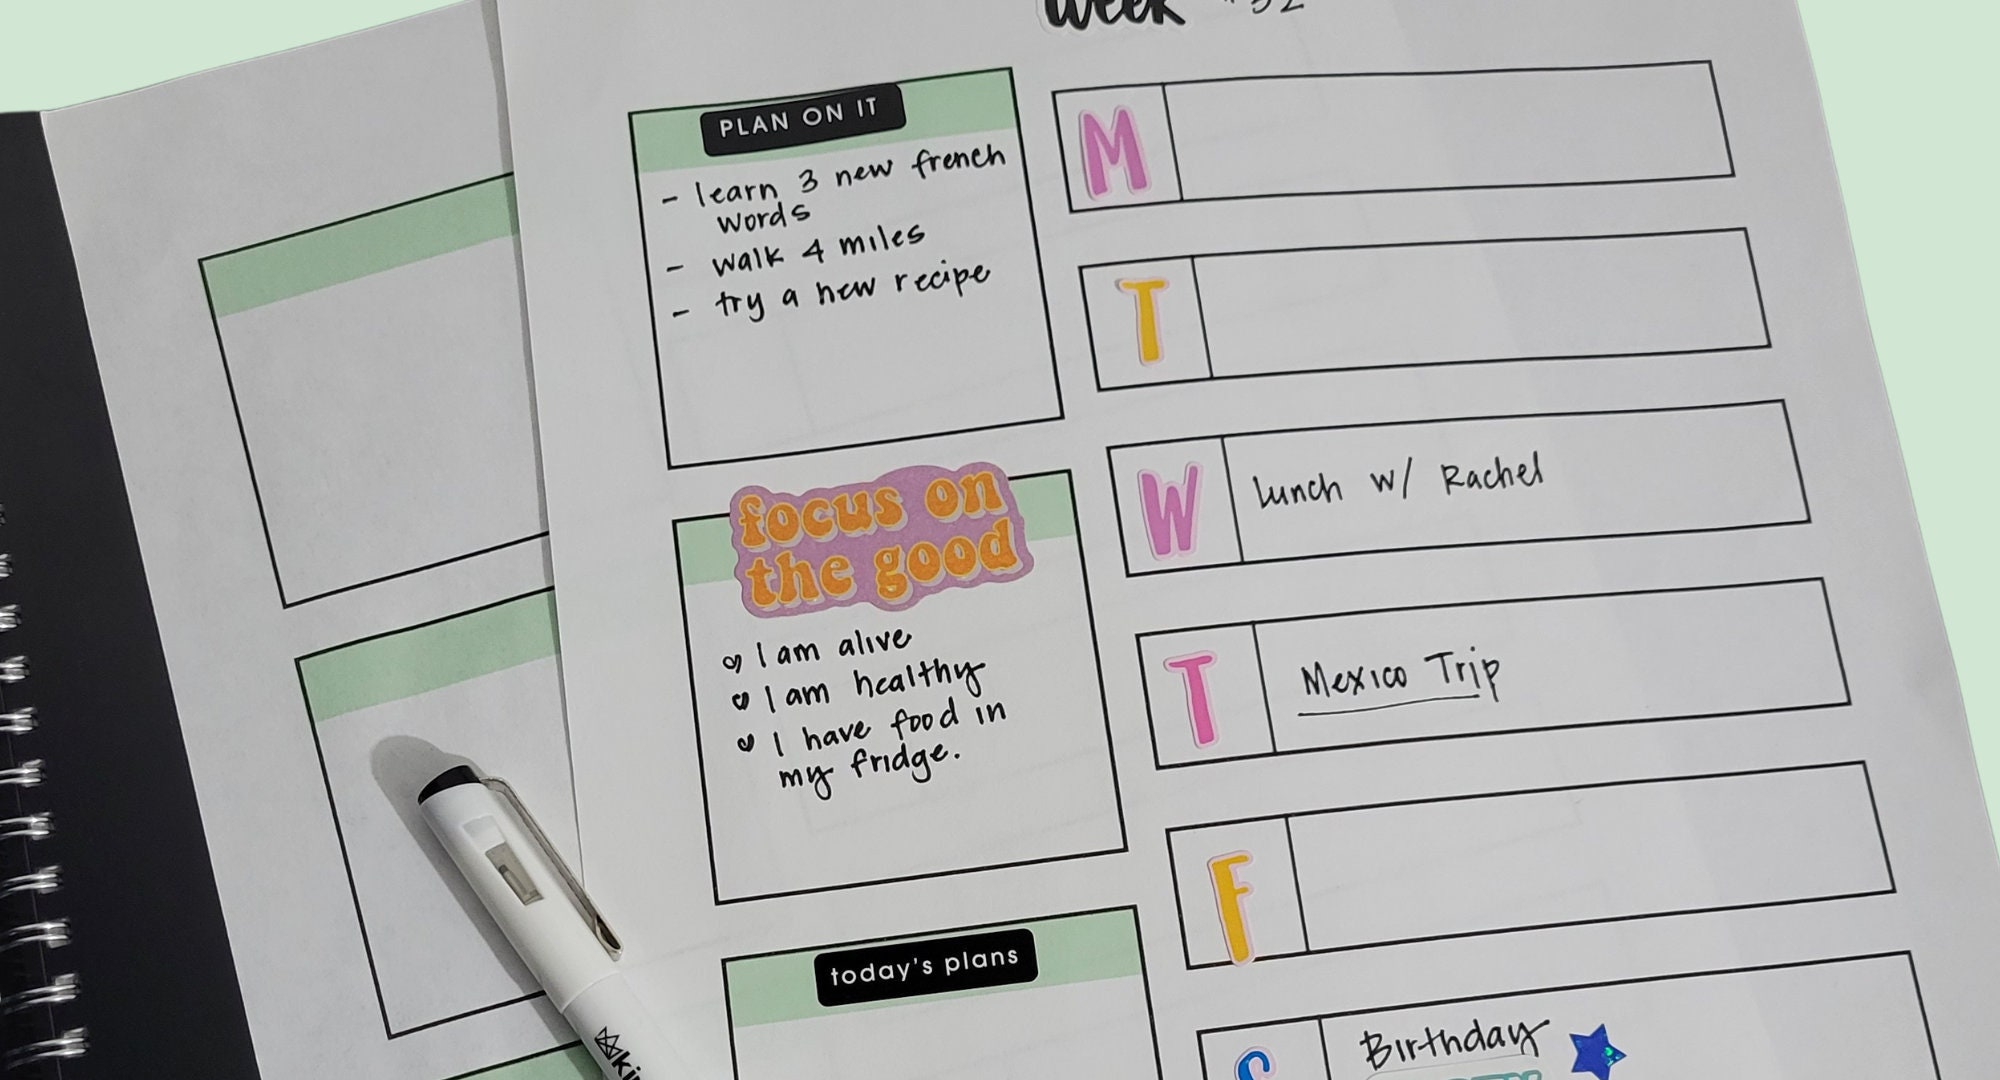 week
PLAN ON IT
- learn 3 new french
words
- walk 4 miles
- try a new recipe
focus on
the good
I am alive
I am healthy
I have food in
my fridge.
today's plans
M
T
W
Lunch w/ Rachel
T
Mexico Trip
F
S
Birthday